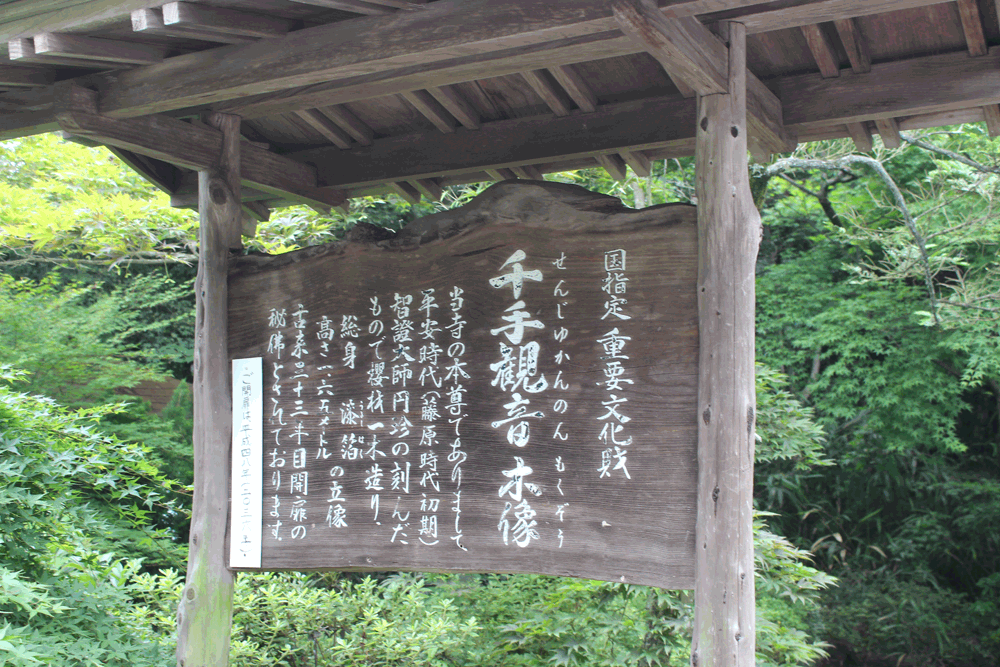 国指定 重要文化財
せんじゆかんのん もくぞう
千手観音木像
当寺の本尊でありまして、
平安時代（藤原時代初期）
智證大師円珍の刻んだ
もので櫻材一木造り、
総身 漆箔の立像
高さ一・六五メトル
古来三十三年目開扉の
秘佛とされております。